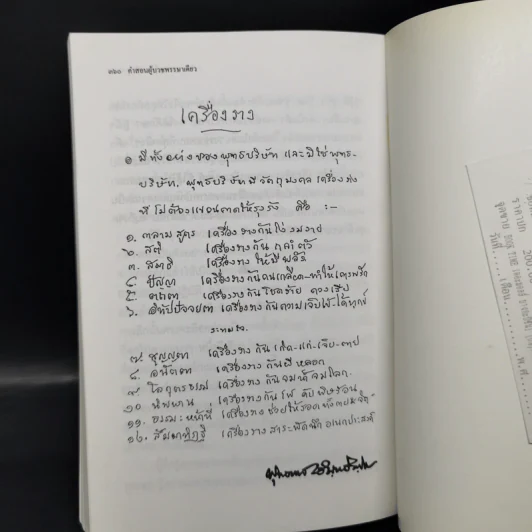 ๓๖๐ คำสอนผู้บวชพรรษาเดียว
เครื่องราง
๏ มีทั้งอย่างของพุทธบริษัท และมิใช่พุทธ-
บริษัท. พุทธบริษัทมีวัตถุมงคล เครื่องราง
ที่ไม่ต้องแขวนคอให้รุงรัง คือ :–
๑. กาลามสูตร เครื่องรางกันโง่ งมงาย
๒. สติ เครื่องราง กัน
๓. สมาธิ เครื่องราง ให้มีพลัง
๔. ปัญญา เครื่องรางกัน
๕. เครื่องรางกันโชคร้าย ดวงเสีย
๖. อิทัปปัจจยตา เครื่องราง กันความเจ็บไข้-ได้ทุกข์
ระทมใจ.
๗. สุญญตา เครื่องราง กัน เกิด-แก่-เจ็บ-ตาย
๘. อนัตตา เครื่องราง กันผีหลอก
๙. โลกุตรธรรม์ เครื่องราง กันจมน้ำจมโลก.
๑๐. นิพพาน เครื่องราง กัน ไฟ
๑๑. ธรรมะหน้าที่ เครื่องราง ช่วยให้รอดทั้งกายและจิต
๑๒. สัมมาทิฏฐิ เครื่องราง สารพัดนึก อเนกประสงค์
พุทธทาส อินฺทปญฺโญ